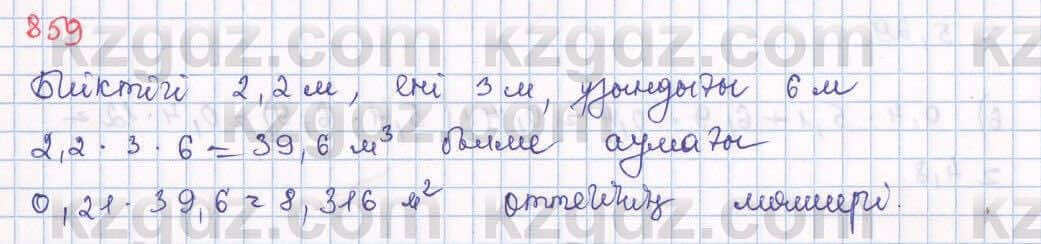 859
kzgdz.com
Биіктігі 2,2 м, ені 3 м, ұзындығы 6 м
2,2 · 3 · 6 = 39,6 м³ бөлме аумағы
0,21 · 39,6 = 8,316 м² оттегінің мөлшері.